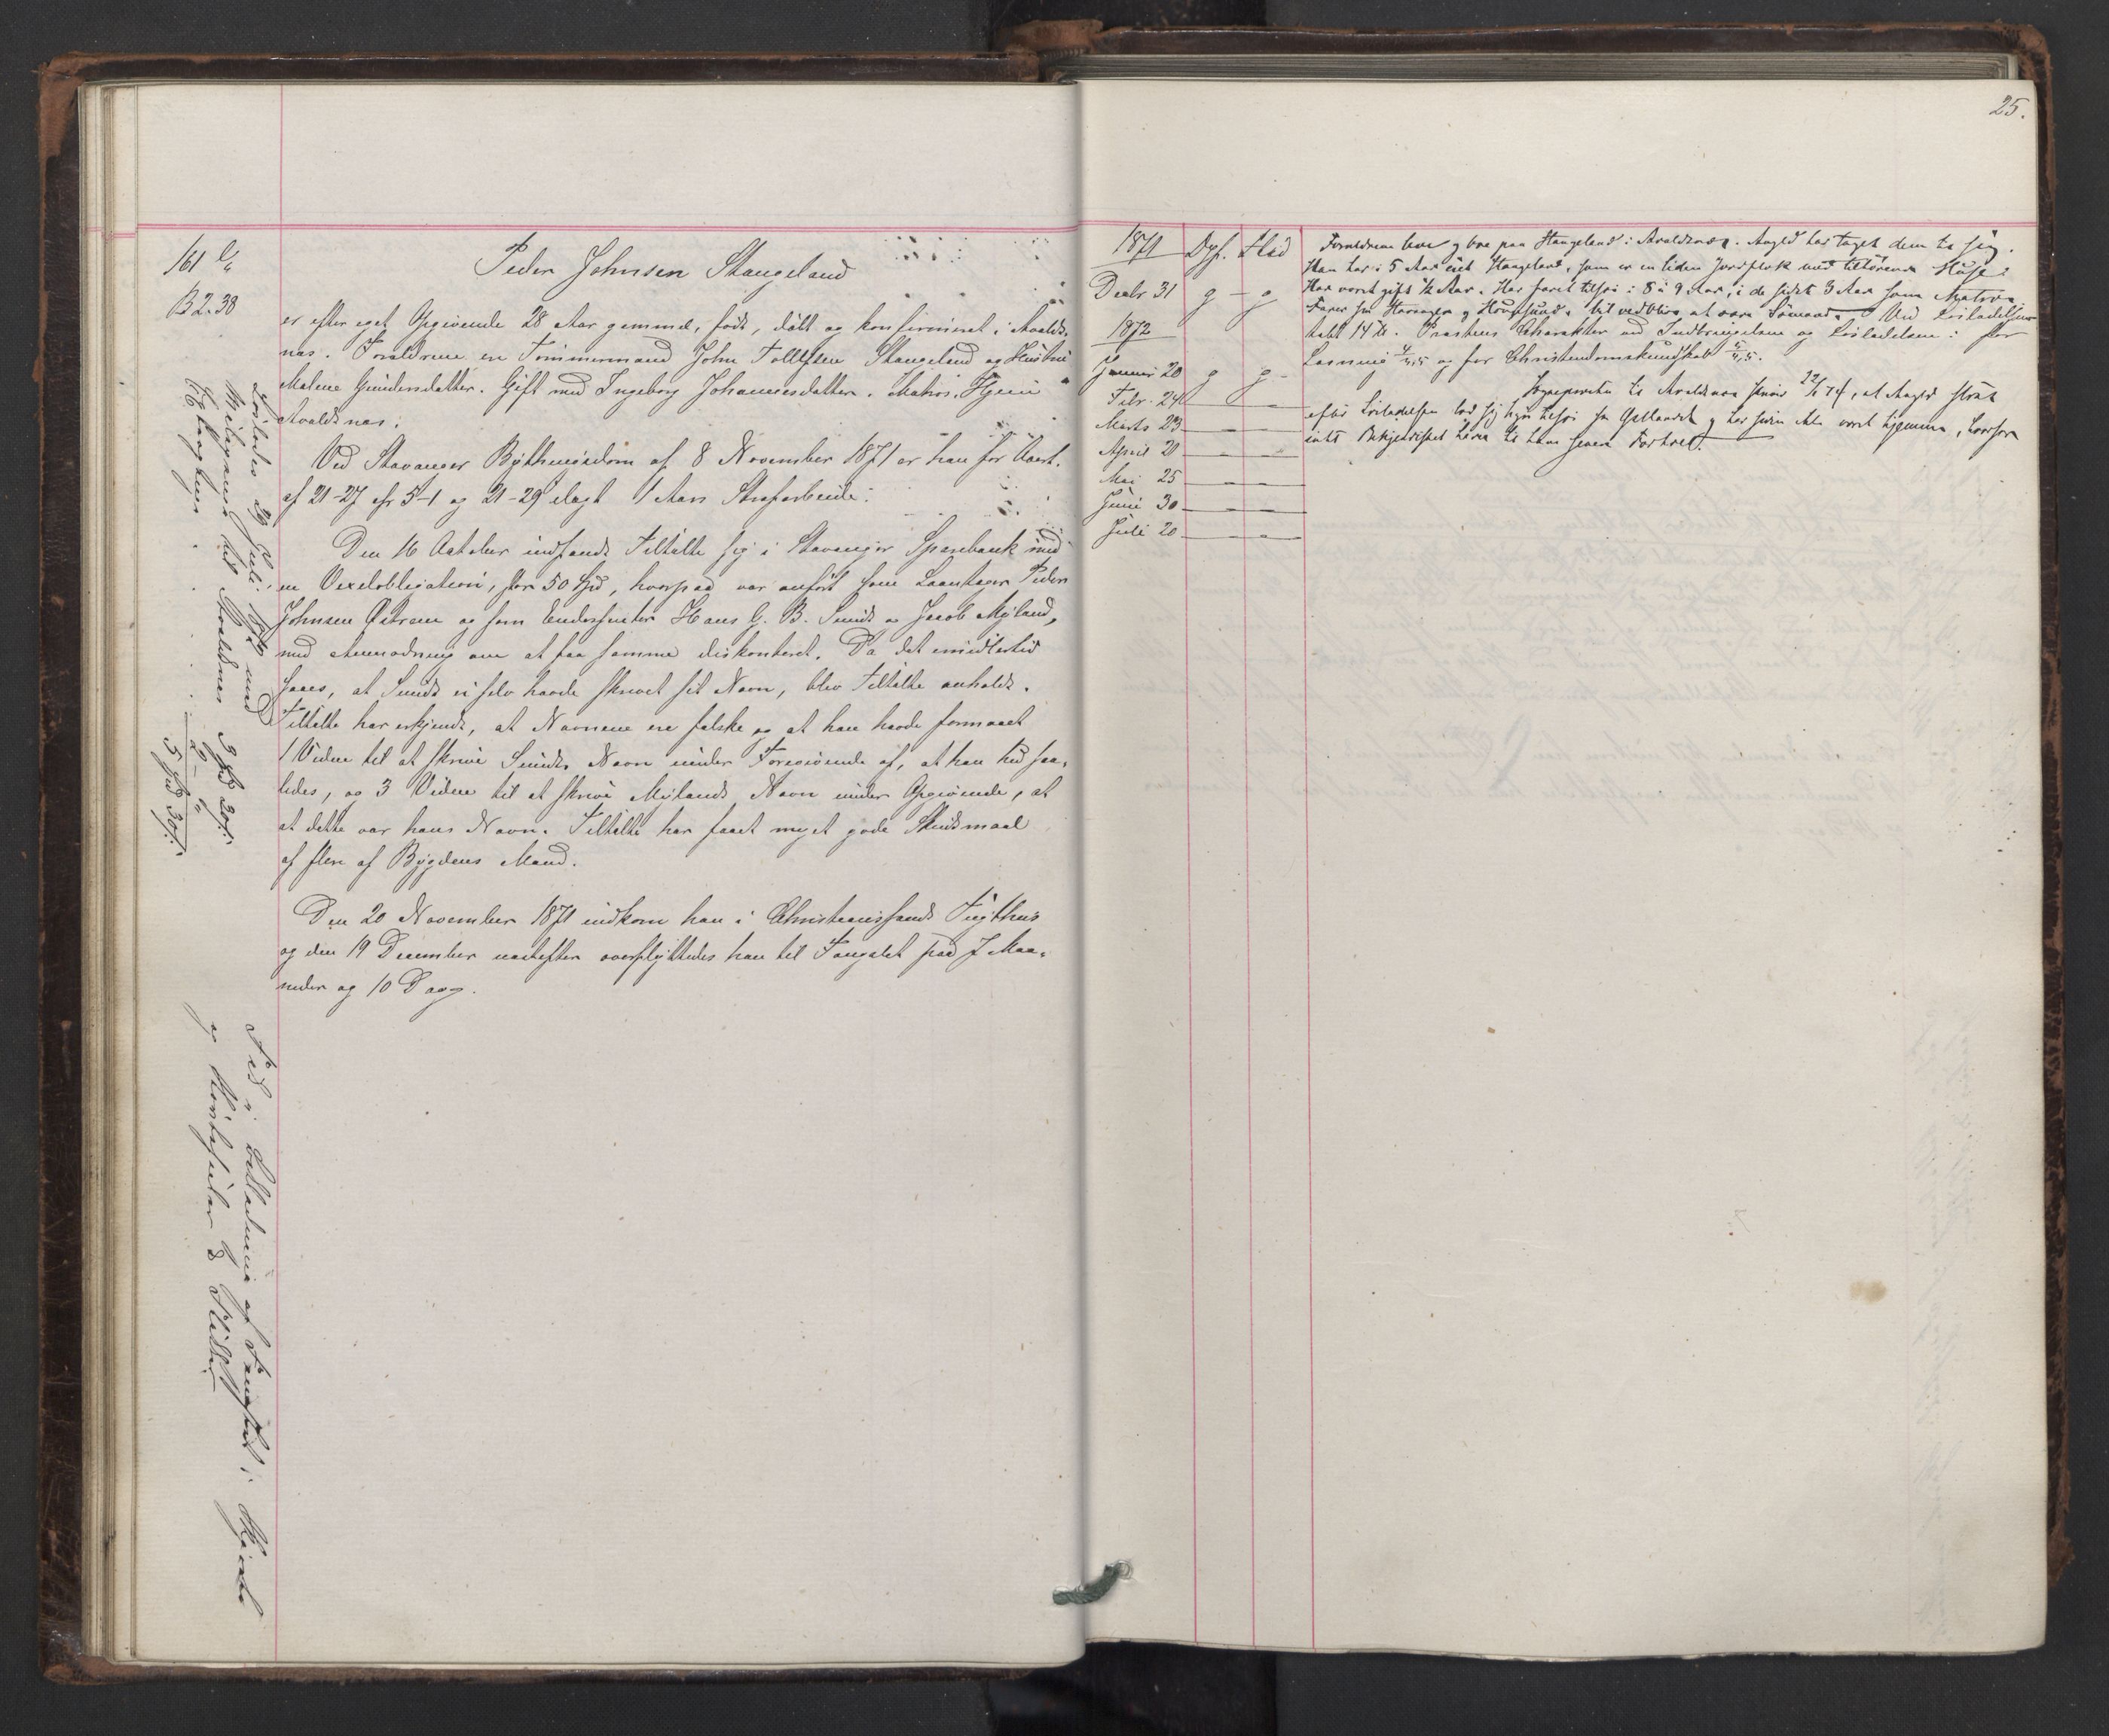 161
B 2.38
Peder Johnsen Stangeland
er efter eget Opgivende 28 Aar gammel, født, døbt og konfirmeret i Avalds-
næs. Forældrene ere Tømmermand John Tollefsen Stangeland og Hustru
Malene Gundersdatter. Gift med Ingeborg Johannesdatter. Matros. Hjem
Avaldsnæs.
Ved Stavanger Bythingsdom af 8 November 1871 er han for
af 21-27 cfr 5-1 og 21-29 ilagt 1 Aars Strafarbeide.
Den 16 October indfandt Tiltalte sig i Stavanger Sparebank med
en Vexelobligation, stor 50 Spd, hvorpaa var anført som Laantager Peder
Johnsen Østrem og som Endossenter Hans G. B. Sunds og Jacob Myland,
med Anmodning om at faa samme diskonteret. Da det imidlertid
saaes, at Sunds ei selv havde skrevet sit Navn, blev Tiltalte anholdt.
Tiltalte har erkjendt, at Navnene ere falske og at han havde formaaet
1 Vidne til at skrive Sunds Navn under Foregivende af, at han hed saa-
ledes, og 3 Vidne til at skrive Mylands Navn under Opgivende, at
at dette var hans Navn. Tiltalte har faaet meget gode Skudsmaal
af flere af Bygdens Mænd.
Den 20 November 1871 indkom han i Christianssands Tugthus
og den 19 December næstefter overflyttedes han til Fangslet paa 7 Maa-
neder og 10 Dage.
Løsladen 29 Juli 1872 med
Reisepenge til Avaldsnæs 3 Spd 20 s.
2 - "
5 Spd 20 s.
Fed i af Fængslet i
og og
25.
1871 Opf. Flid
Decbr 31 g - g
1872
Januar 20 g g -
Febr. 24 — —
Marts 23 — —
April 20 — —
Mai 25 — —
Juni 30 — —
Juli 20 — —
Forældrene leve og boe paa Stangeland i Avaldsnæs. Angld har taget dem til sig.
Han har i 5 Aar eiet Stangeland, som er en liden Jordflæk med tilhørende Huse.
Har været gift ½ Aar. Har faret tilsøs i 8 à 9 Aar, i de sidste 3 Aar som Matros.
Farer fra Stavanger og Haugesund. Vil vedblive at være Sømand. Ved Løsladelsen
tabt 14 ℔. Præstens Charakter ved Indbringelsen og Løsladelsen: for
Læsning og for Christendomskundskab
Sognepresten til Avaldsnæs skriver 22/ 74, at Angld strax
efter Løsladelsen lod sig hyre tilsøs og har siden ikke været hjemme, hvorfor
intet Bekjendtskab haves til hans senere Forhold.